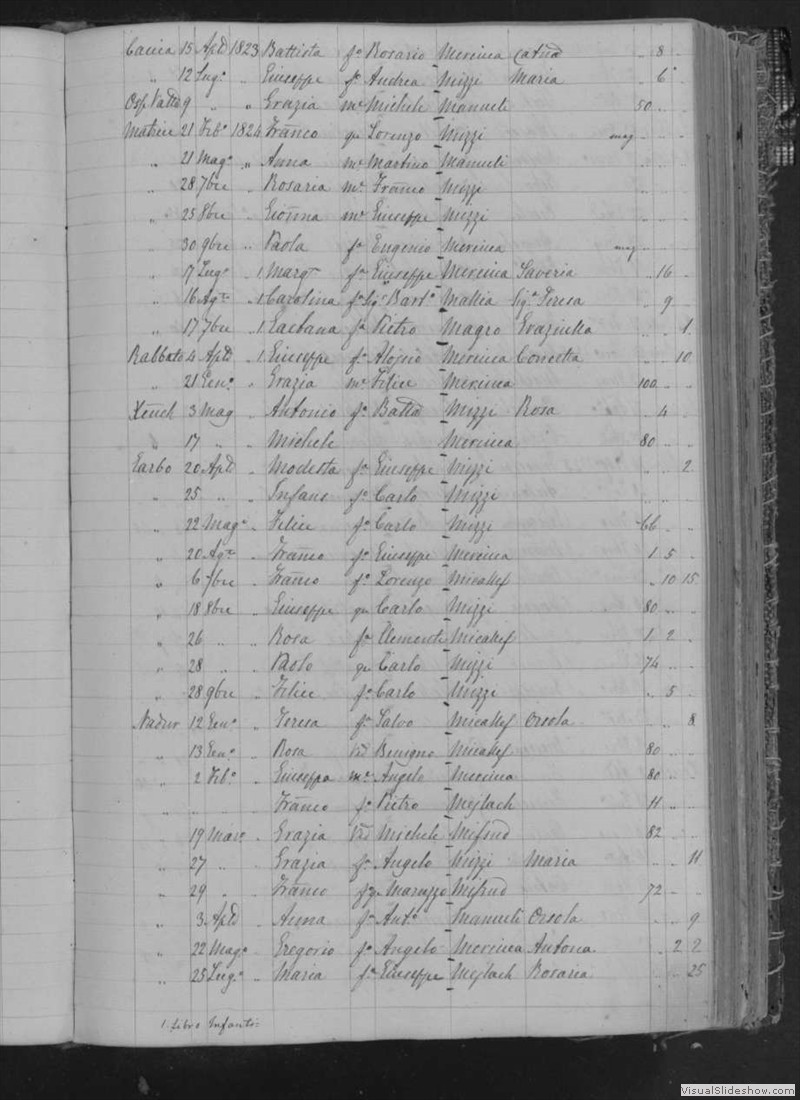 Caccia 15 Aple 1823 Battista fo Rosario Mercieca Catna .. 8 ..
" 12 Lugo " Giuseppe fo Andrea Mizzi Maria .. 6 ..
9 " " Grazia me Michele Manueli 50 .. ..
Matrice 21 Febo 1824 Franco qm Lorenzo Mizzi mag .. .. ..
" 21 Mago " Anna me Martino Manueli
" 28 7bre " Rosaria me Franco Mizzi
" 25 8bre " Gioṉna me Giuseppe Mizzi
" 30 9bre " Paola fa Eugenio Mercieca mag .. .. ..
" 17 Lugo " 1. Margta fa Giuseppe Mercieca Saveria .. 16 ..
" 16 Agto " 1. Carolina fa Sigr Barto Mallia Siga Teresa .. 9 ..
" 17 7bre " 1. Gaetana fa Pietro Magro Graziulla .. .. 1
Rabbato 4 Aple " 1. Giuseppe fo Aloisio Mercieca Concetta .. .. 10
" 21 Geno " Grazia me Felice Mercieca 100 .. ..
Xeuch 3 Mag " Antonio fo Batta Mizzi Rosa .. 4 ..
" 17 " " Michele Mercieca 80 .. ..
Garbo 20 Aple " Modesta fa Giuseppe Mizzi .. .. 2
" 25 " " Infans fo Carlo Mizzi .. .. ..
" 22 Mago " Felice fo Carlo Mizzi 66 .. ..
" 20 Agto " Franco fo Giuseppe Mercieca 1 5 ..
" 6 7bre " Franco fo Lorenzo Micallef .. 10 15
" 18 8bre " Giuseppe qm Carlo Mizzi 80 .. ..
" 26 " " Rosa fa Clemente Micallef 1 2 ..
" 28 " " Paolo qm Carlo Mizzi 74 .. ..
" 28 9bre " Felice fo Carlo Mizzi .. 5 ..
Nadur 12 Geno " Teresa fa Salvo Micallef Orsola .. .. 8
" 13 Geno " Rosa Vda Benigno Micallef 80 .. ..
" 2 Febo " Giuseppa me Angelo Mercieca 80 .. ..
" " Franco fo Pietro Mejlach 11 .. ..
" 19 Marzo " Grazia Vda Michele Mifsud 82 .. ..
" 27 " " Grazia fa Angelo Mizzi Maria .. .. 11
" 29 " " Franco Maruzzo Mifsud 72 .. ..
" 3 Aple " Anna fa Anto Manueli Orsola .. .. 9
" 22 Mago " Gregorio fo Angelo Mercieca Antonia .. 2 2
" 25 Lugo " Maria fa Giuseppe Mejlach Rosaria .. .. 25
1. Libro Infanti
VisualSlideshow.com